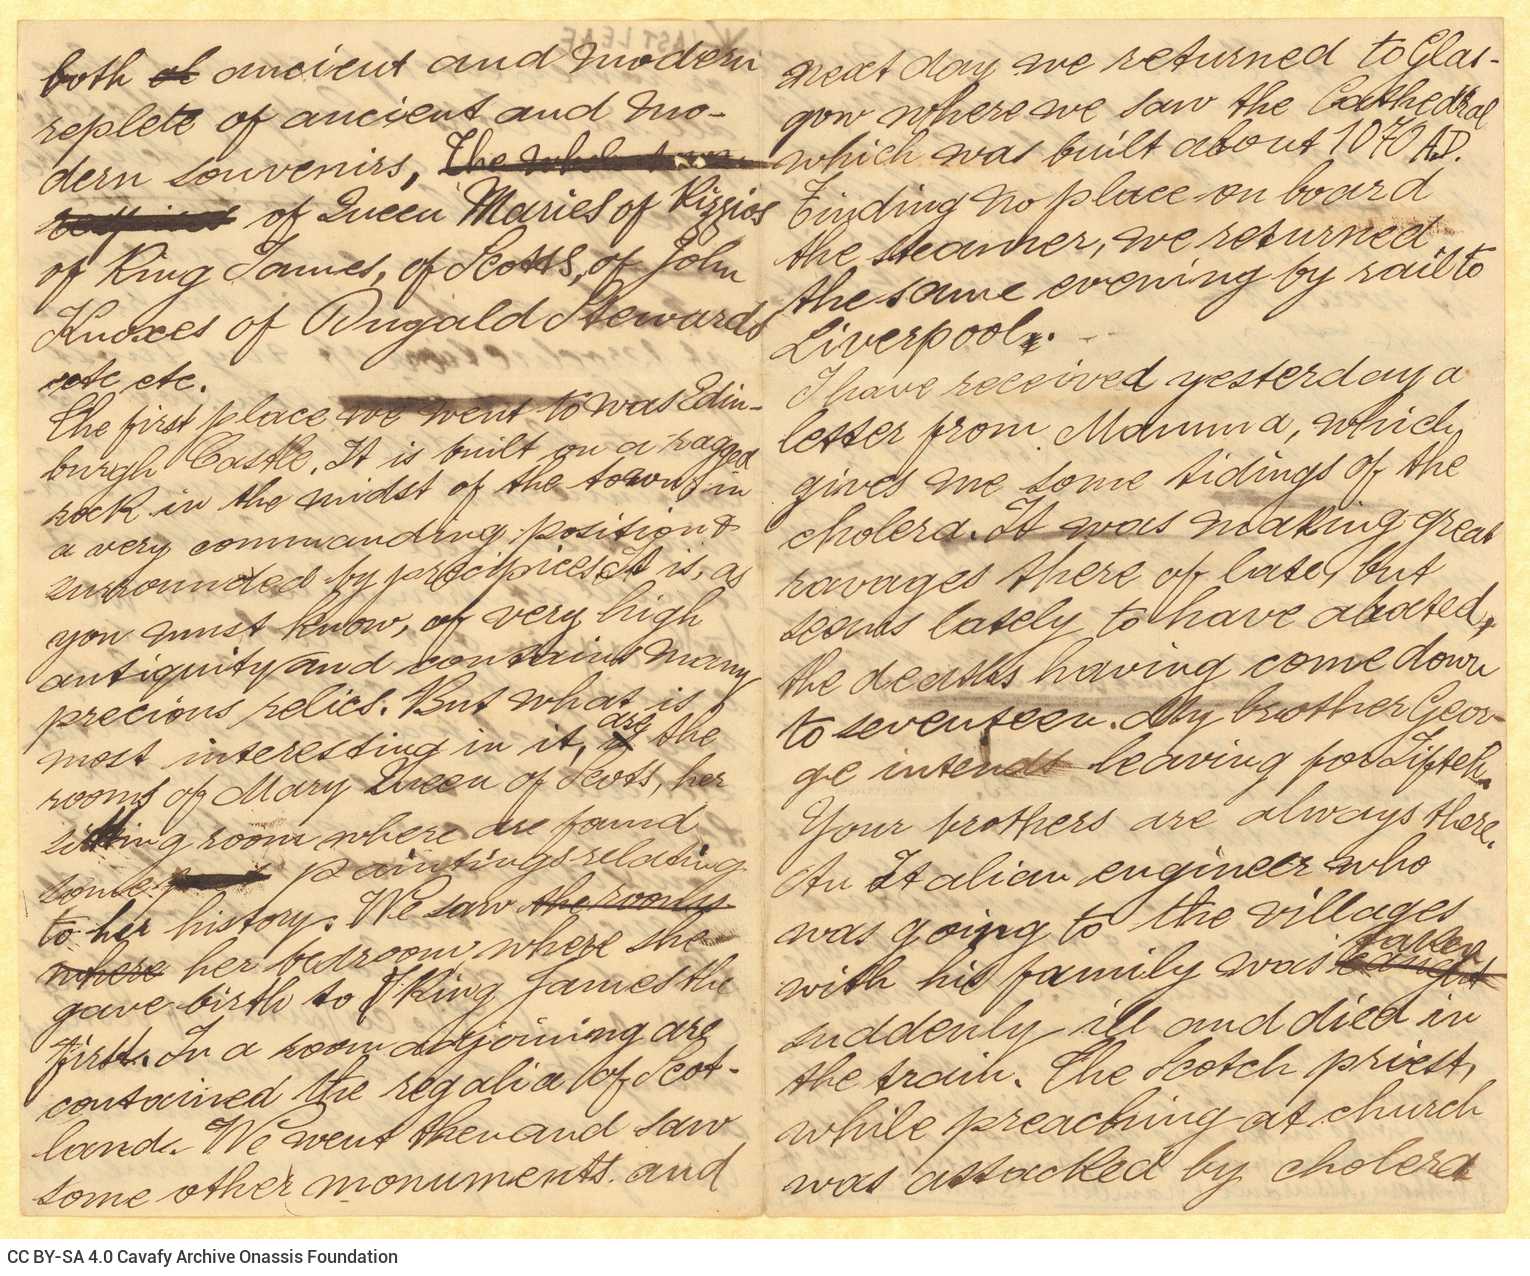 both of ancient and modern
replete of ancient and mo-
dern souvenirs, The whole town
of Queen Maries of Rizzios
of King James, of Scotts, of John
Knoxes of Dugald Stewards
etc etc.
The first place we went to was Edin-
burgh Castle. It is built on a ragged
rock in the midst of the town, in
a very commanding position &
surrounded by precipices. It is, as
you must know, of very high
antiquity and contains many
precious relics. But what is
most interesting in it, are the
rooms of Mary Queen of Scots, her
sitting room where are found
some paintings relating
to her history. We saw the rooms
where her bedroom where she
gave birth to King James the
first. In a room adjoining are
contained the regalia of Scot-
land. We went then and saw
some other monuments. and
next day we returned to Glas-
gow where we saw the Cathedral
which was built about 1070 A.D.
Finding no place on board
the steamer, we returned
the same evening by rail to
Liverpool.
I have received yesterday a
letter from Mamma, which
gives me some tidings of the
cholera. It was making great
ravages there of late, but
seems lately to have abated,
the deaths having come down
to seventeen. My brother Geor-
ge intends leaving for Zifteh.
Your brothers are always there.
An Italian engineer who
was going to the villages
with his family was caught taken
suddenly ill and died in
the train. The Scotch priest,
while preaching at church
was attacked by cholera
LAST LEAF
CC BY-SA 4.0 Cavafy Archive Onassis Foundation